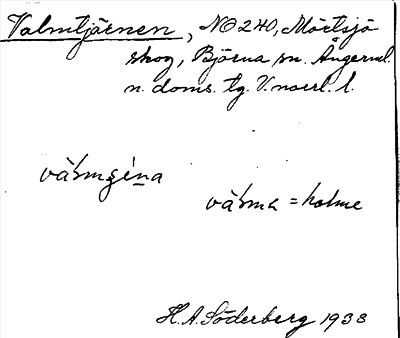 Valmtjärnen, NO 240, Mörtsjö
skog, Björna sn. Ångerml.
n. doms. tg. V. norrl. l.
vàlmʂéna
vàlma = holme
H. A. Söderberg 1938